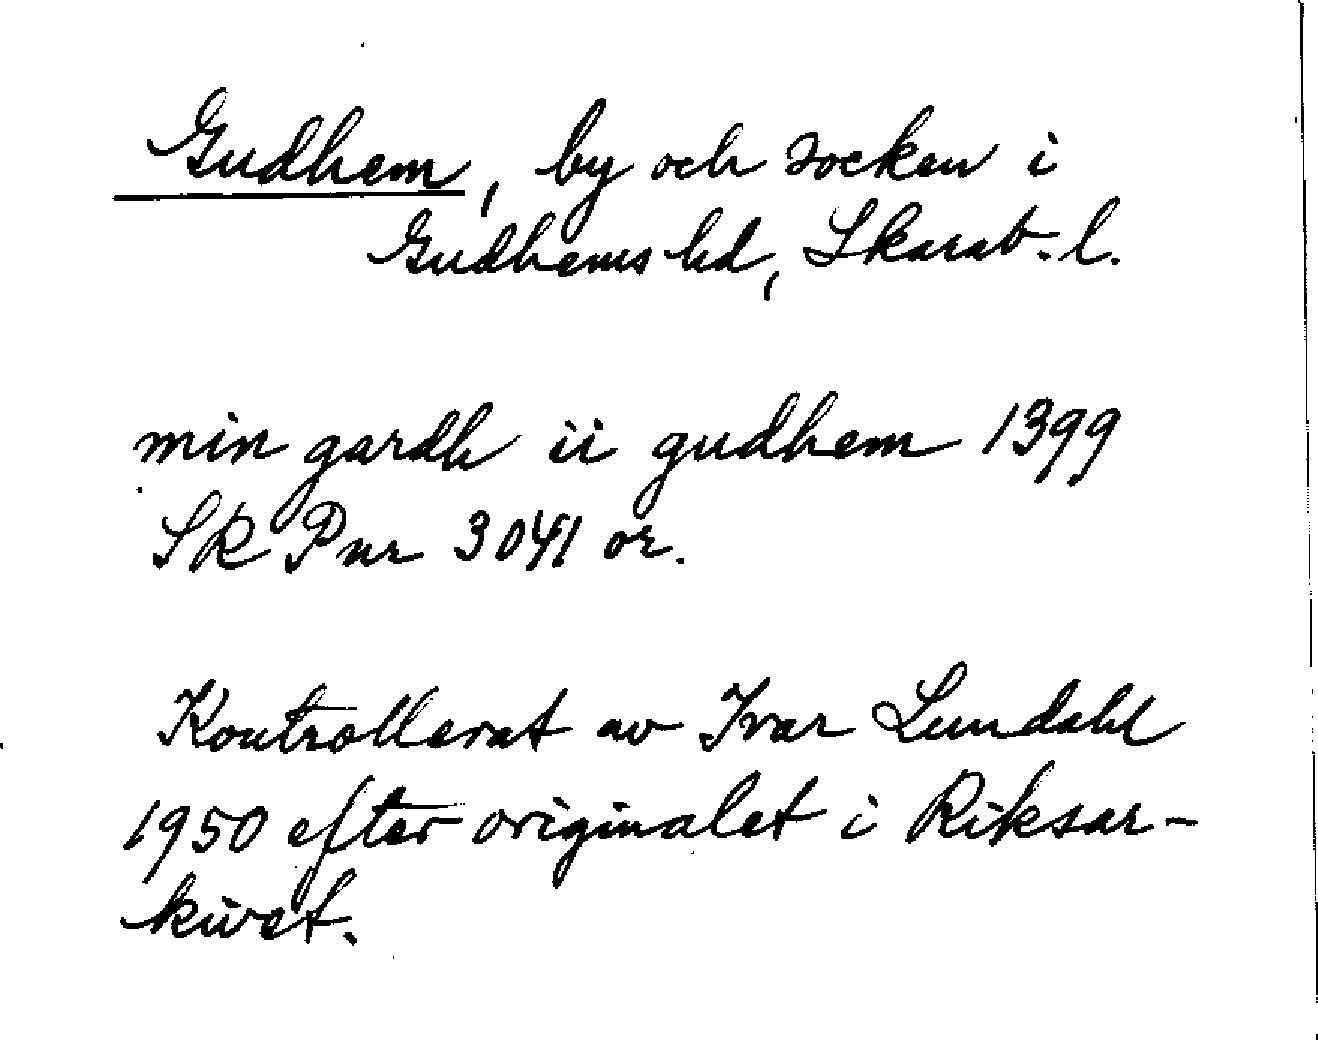 Gudhem, by och socken i
Gudhems hd, Skarab. l.
min gardh ii gudhem 1399
SR Pnr 3041 or.
Kontrollerat av Ivar Lundahl
1950 efter originalet i Riksar-
kivet.